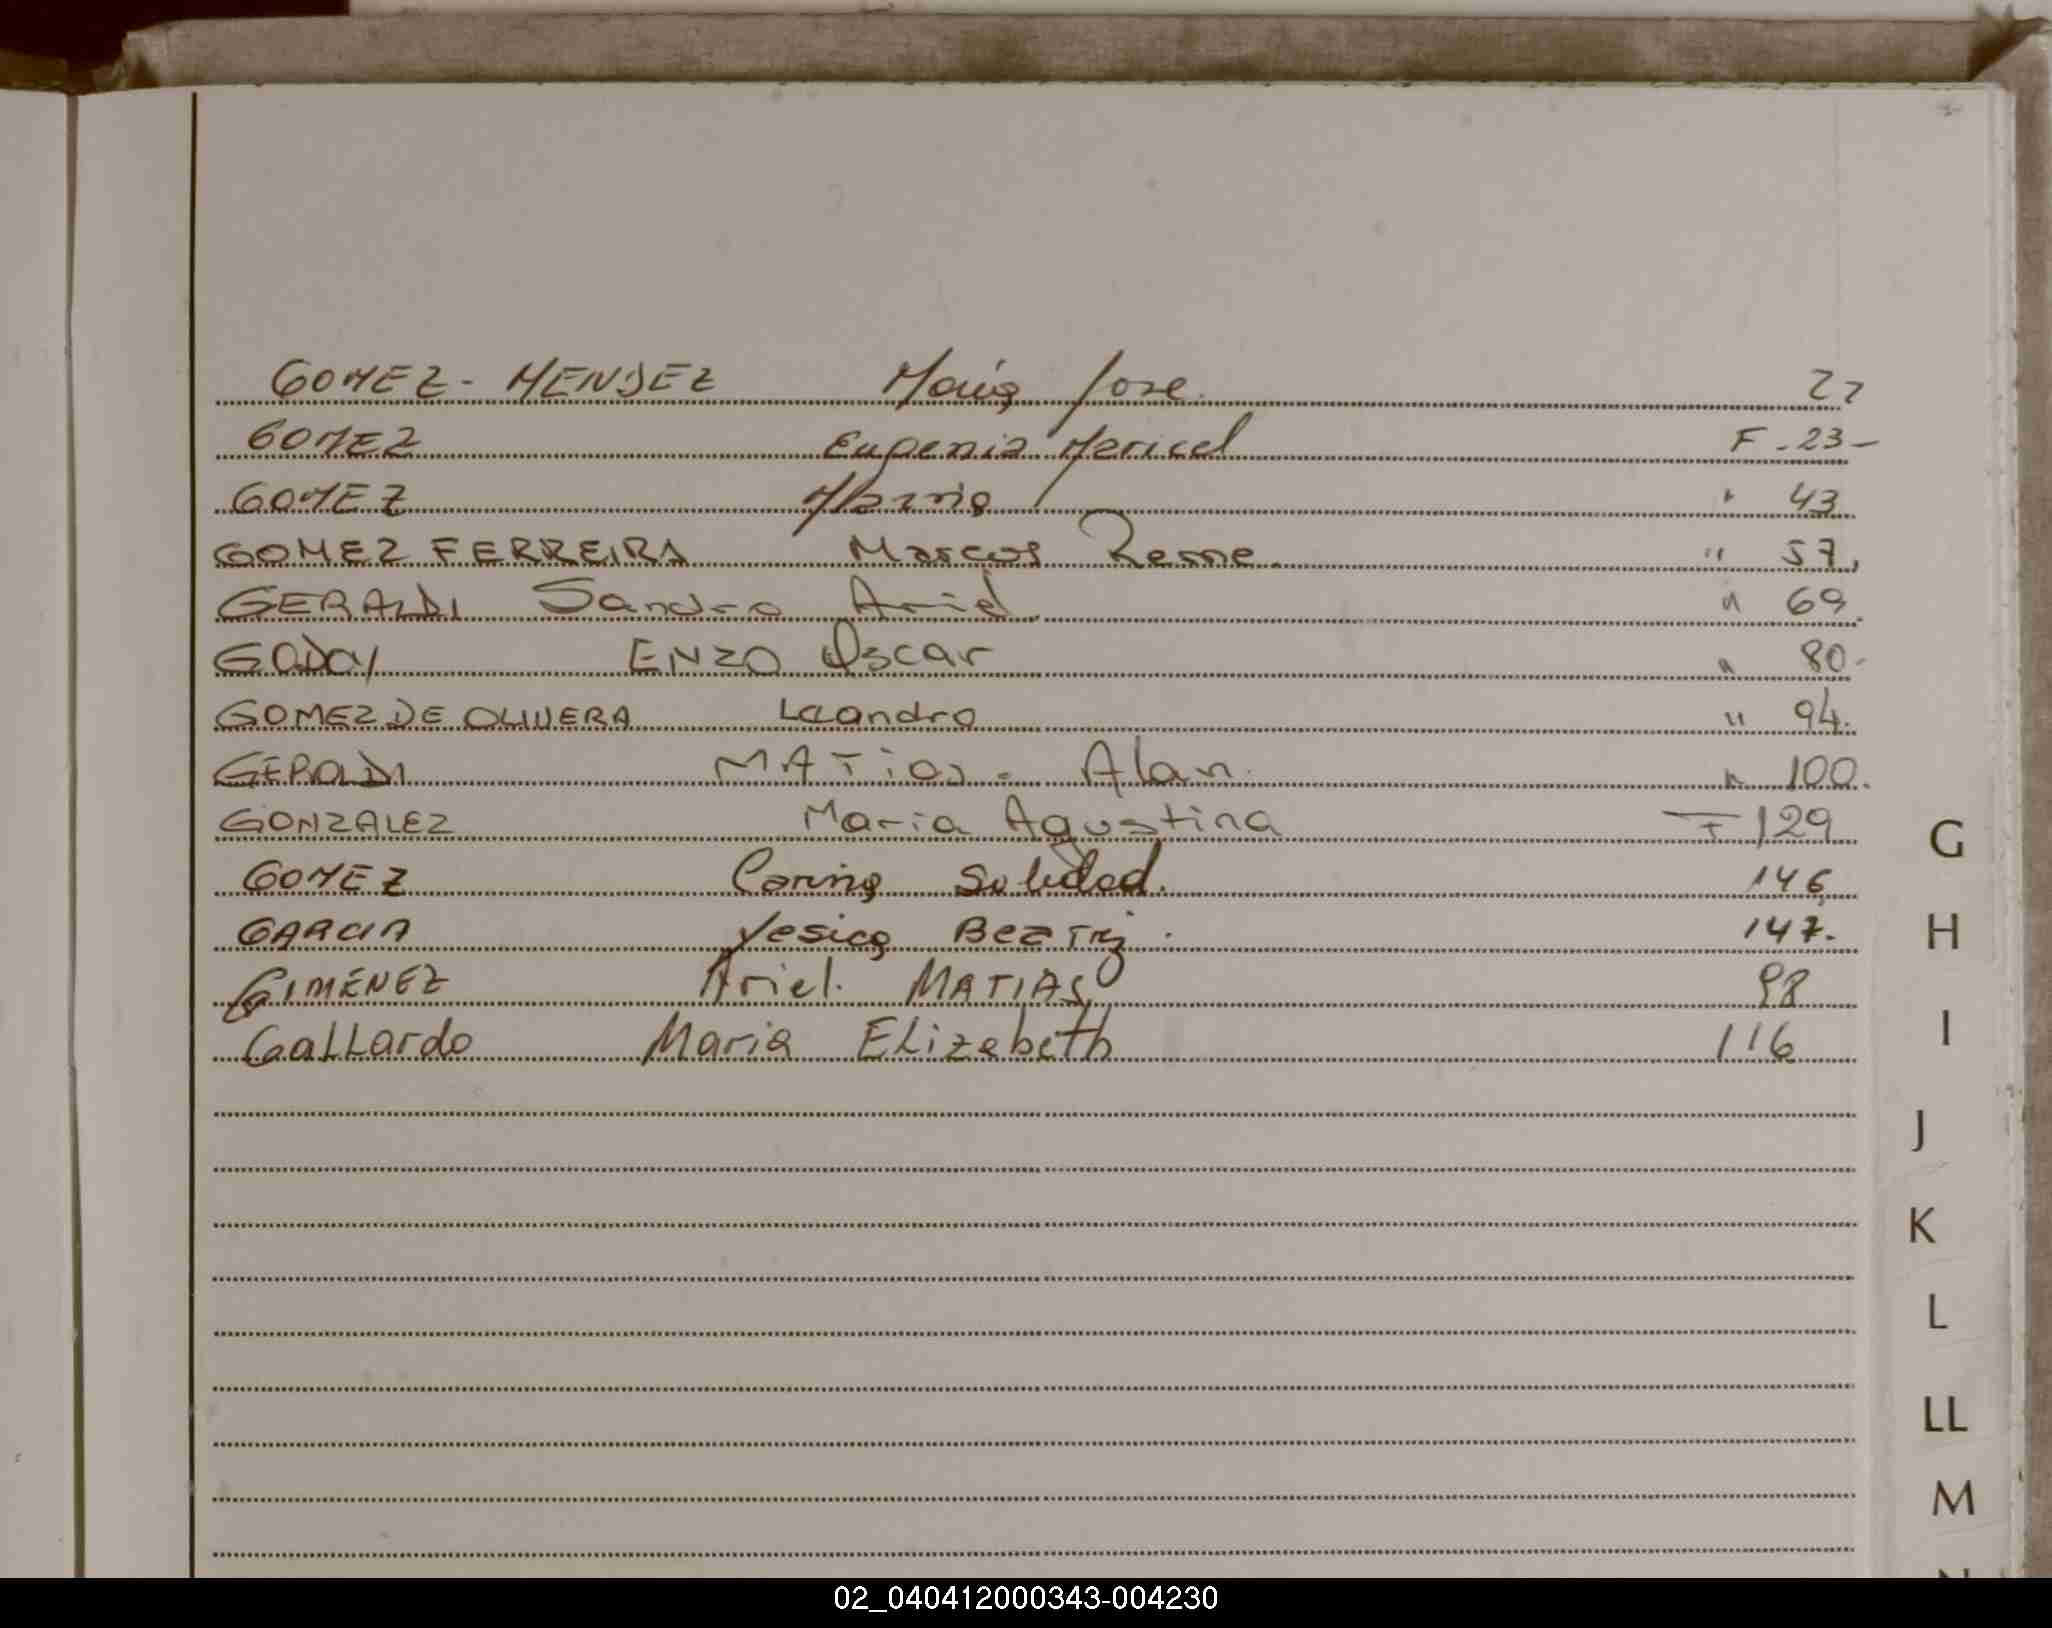 GOMEZ - MENDEZ Maria Jose. 22
GOMEZ Eugenia Maricel F - 23 -
GOMEZ Maria " 43
GOMEZ FERREIRA Marcos Rene. " 57.
GERALDI Sandro Ariel. " 69.
GODOY ENZO Oscar " 80-
GOMEZ DE OLIVERA Leandro " 94.
GEROLDI MATias - Alan. " 100.
GONZALEZ Maria Agustina F 129
G
GOMEZ Carina Soledad. 146
GARCIA Yesica Beatriz . 147.
H
GIMÉNEZ Ariel. MATIAS 98
Gallardo Maria Elizabeth 116
I
J
K
L
LL
M
02_040412000343-004230